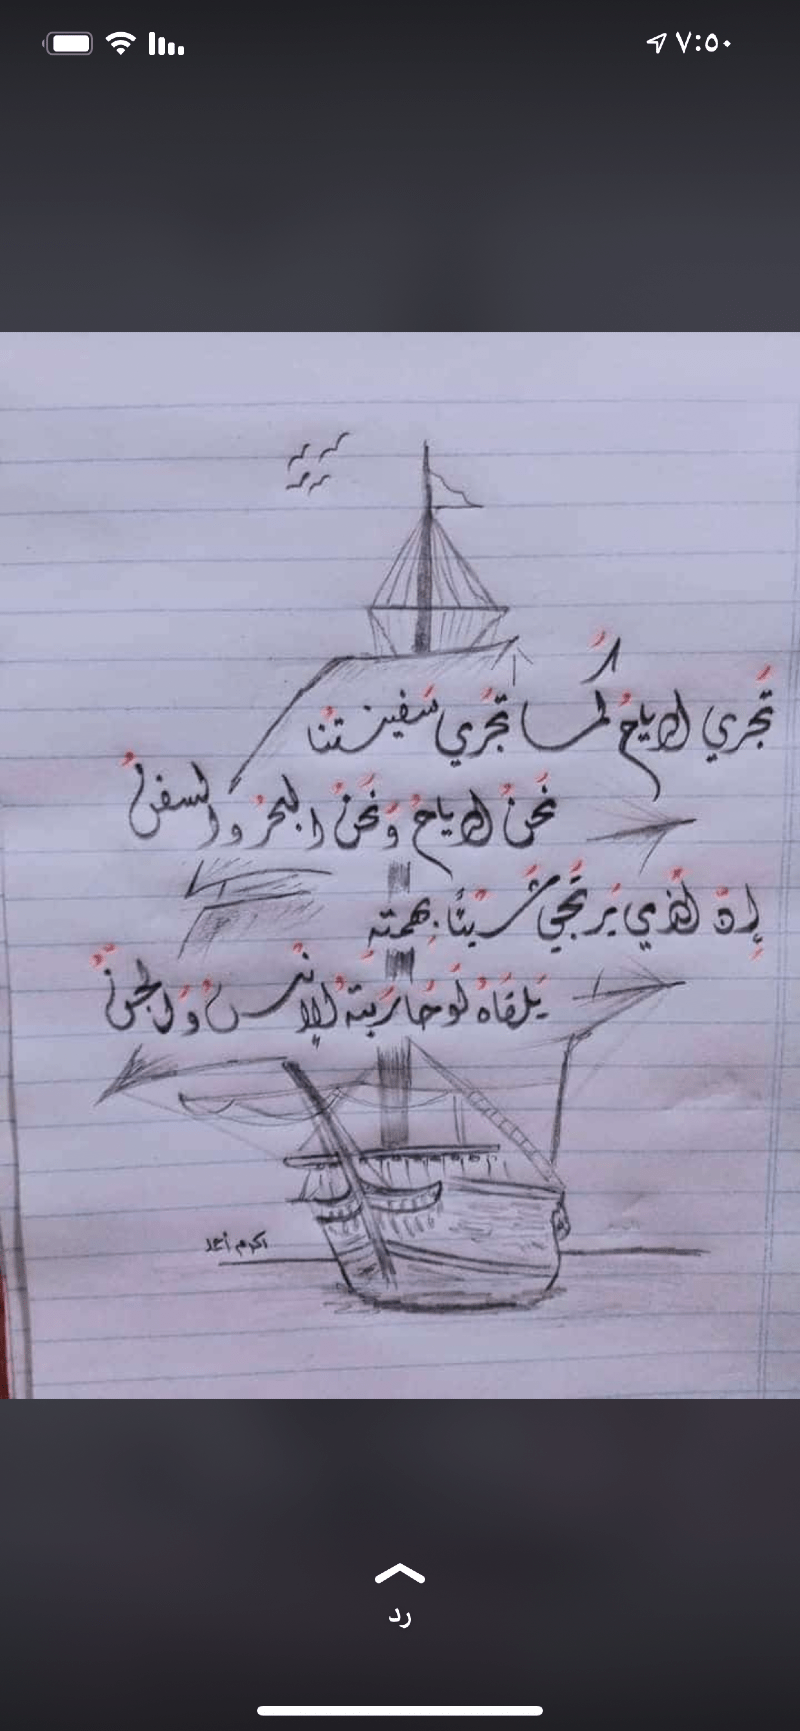 ٧:٥٠
تَجري الرياحُ كَمُا تَجُري سَفينتُنا
نَحنُ الرياحُ وَنَحنُ البحرُ والسفنُ
إِنّ الَّذي يَرتَجي شَيئًا بِهمتهِ
يَلقَاهُ لَوحَارَبتهُ الإِنسُ وَالجنُّ
اكرم أحمد
رد